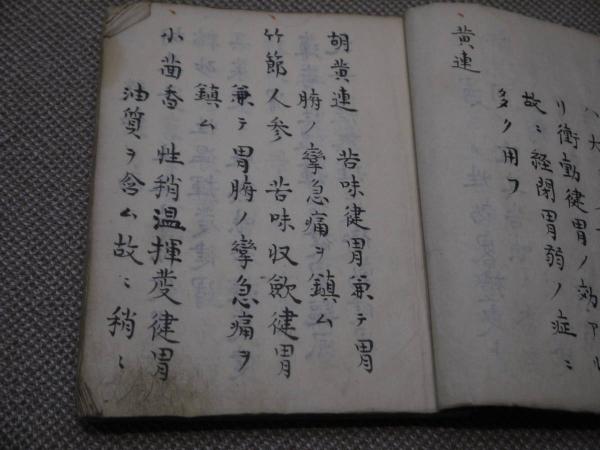 リ衝動健胃ノ効アル
故ニ経閉胃弱ノ症ニ
多ク用フ
黄連
胡黄連 苦味健胃兼テ胃
腑ノ攣急痛ヲ鎮ム
竹節人参 苦味収歛健胃
兼テ胃腑ノ攣急痛ヲ
鎮ム
小茴香 性稍温揮發健胃
油質ヲ含ム故ニ稍ニ